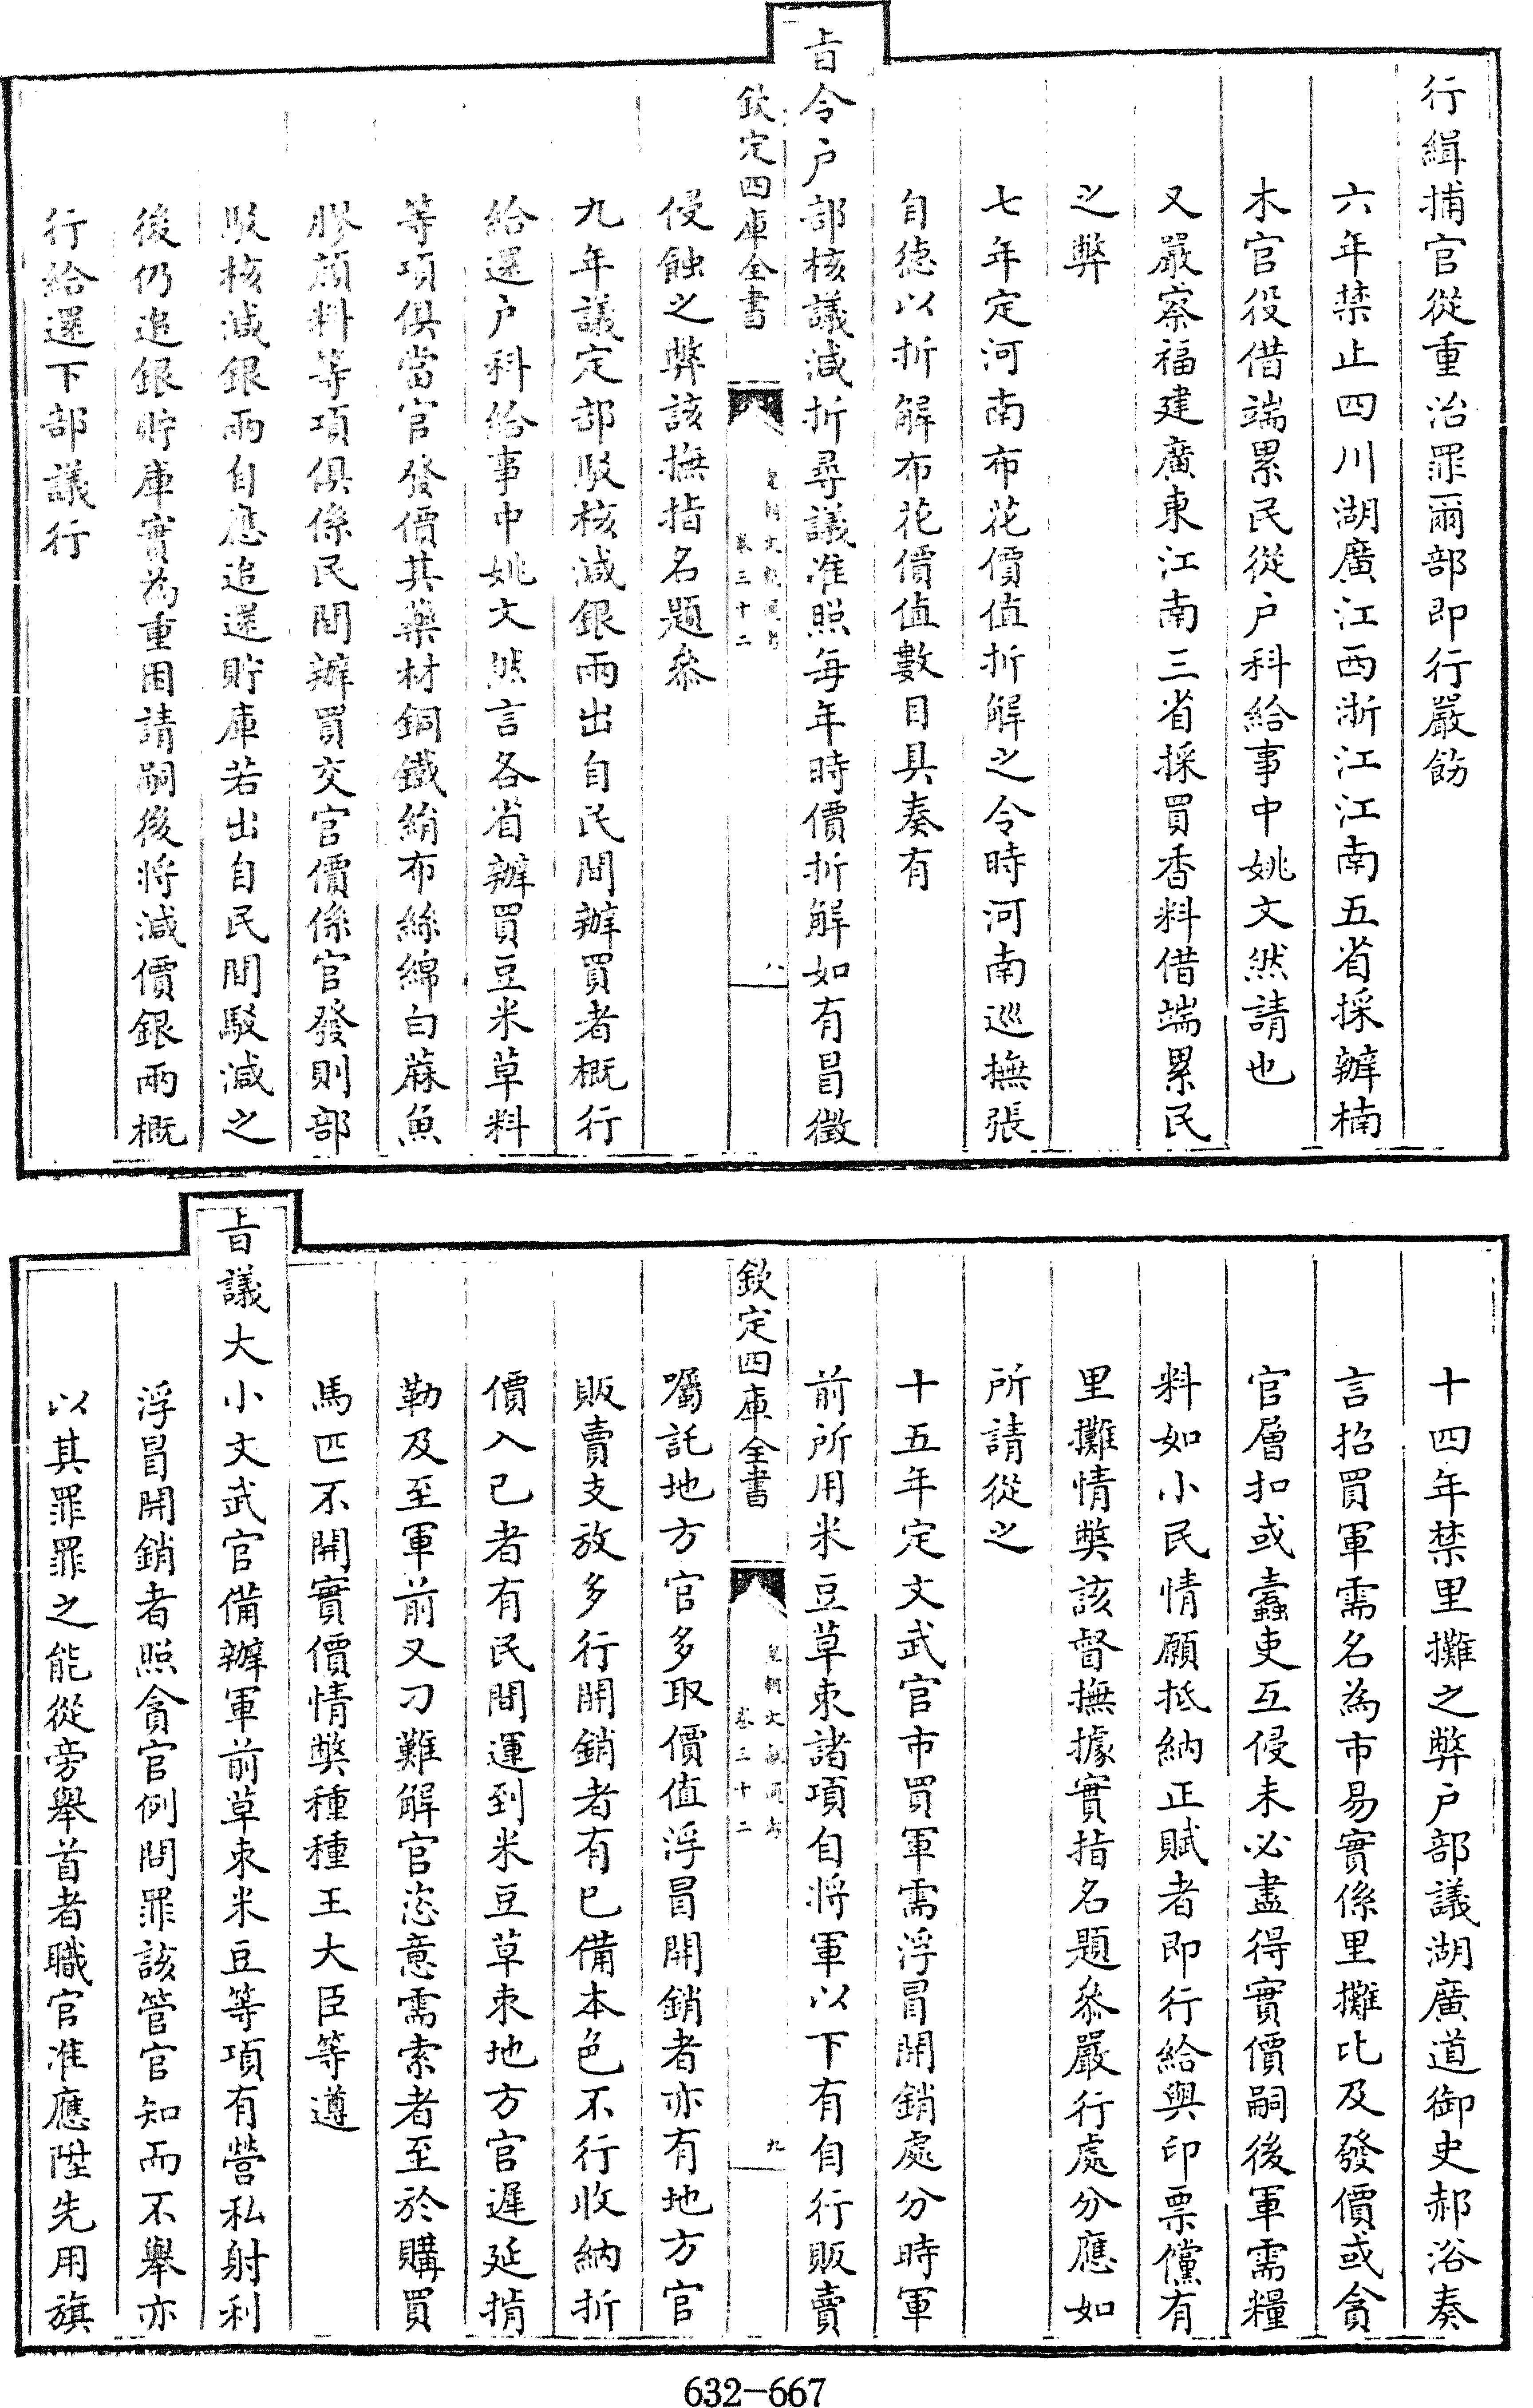 行緝捕官從重治罪爾部即行嚴飭
六年禁止四川湖廣江西浙江江南五省採辦楠
木官役借端累民從户科給事中姚文然請也
又嚴察福建廣東江南三省採買香料借端累民
之弊
七年定河南布花價值折解之令時河南巡撫張
自德以折解布花價值數目具奏有
旨令户部核議減折尋議准照每年時價折解如有冒徵
欽定四庫全書
皇朝文獻通考
卷三十二
八
侵蝕之弊該撫指名題叅
九年議定部駁核減銀兩出自民間辦買者概行
給還户科給事中姚文然言各省辦買豆米草料
等項俱當官發價其藥材銅鐵絹布絲綿白蔴魚
膠顔料等項俱係民間辦買交官價係官發則部
駁核減銀兩自應追還貯庫若出自民間駁減之
後仍追銀貯庫實為重困請嗣後將減價銀兩概
行給還下部議行
十四年禁里攤之弊户部議湖廣道御史郝浴奏
言招買軍需名為市易實係里攤比及發價或貪
官層扣或蠧吏互侵未必盡得實價嗣後軍需糧
料如小民情願抵納正賦者即行給與印票儻有
里攤情獘該督撫據實指名題叅嚴行處分應如
所請從之
十五年定文武官市買軍需浮冒開銷處分時軍
前所用米豆草束諸項自將軍以下有自行販賣
欽定四庫全書
皇朝文獻通考
卷三十二
九
囑託地方官多取價值浮冒開銷者亦有地方官
販賣支放多行開銷者有已備本色不行收納折
價入己者有民間運到米豆草束地方官遲延掯
勒及至軍前又刁難解官恣意需索者至於購買
馬匹不開實價情獘種種王大臣等遵
旨議大小文武官備辦軍前草束米豆等項有營私射利
浮冒開銷者照貪官例問罪該管官知而不舉亦
以其罪罪之能從旁舉首者職官准應陞先用旗
632-667